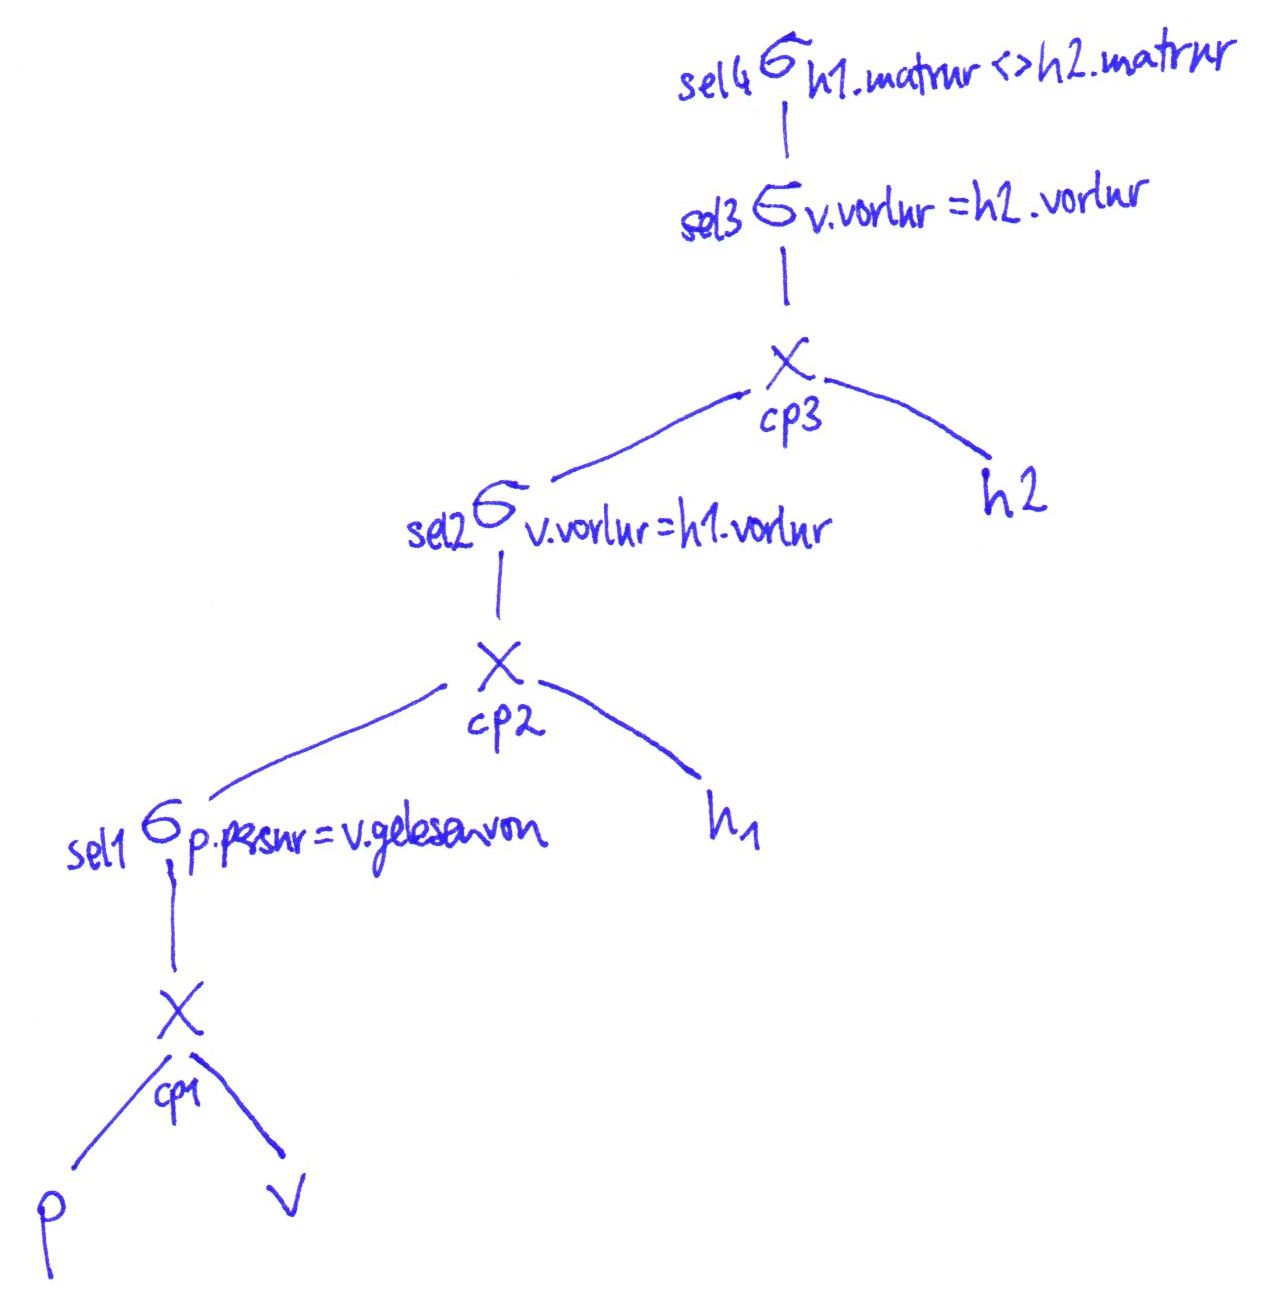 sel4 σ h1.matrnr <> h2.matrnr
sel3 σ v.vorlnr = h2.vorlnr
X
cp3
h2
sel2 σ v.vorlnr = h1.vorlnr
X
cp2
h1
sel1 σ p.persnr = v.gelesenvon
X
cp1
p v